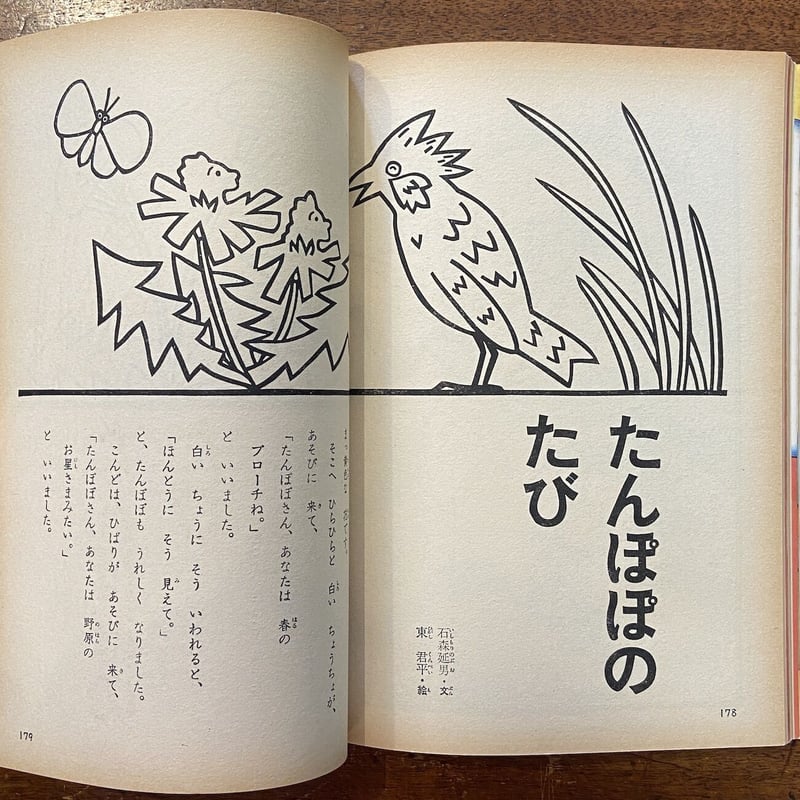 たんぽぽの
たび
石森延男・文
東 君平・絵
178
まっ黄色な 花です。
そこへ ひらひらと 白い ちょうちょが、
あそびに 来て、
「たんぽぽさん、あなたは 春の
ブローチね。」
と いいました。
白い ちょうに そう いわれると、
「ほんとうに そう 見えて。」
と、たんぽぽも うれしく なりました。
こんどは、ひばりが あそびに 来て、
「たんぽぽさん、あなたは 野原の
お星さまみたい。」
と いいました。
179